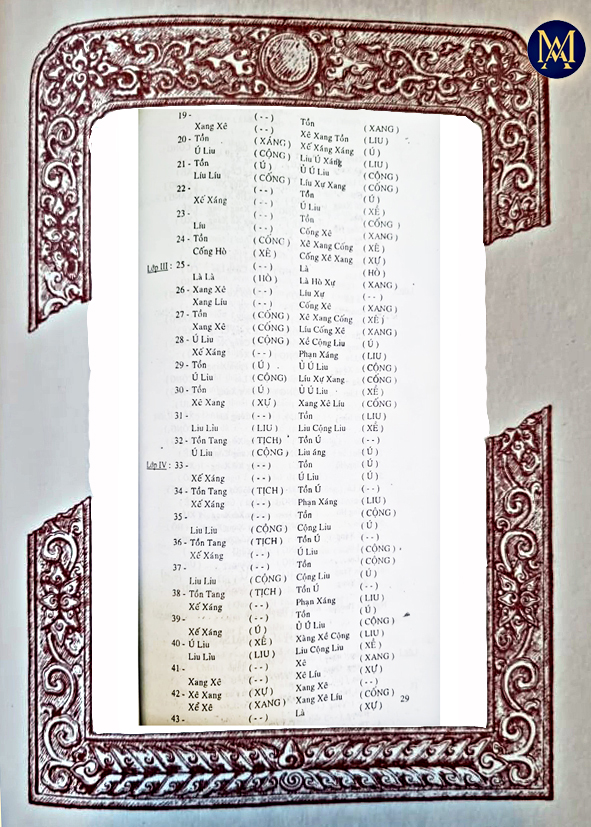 MA
19 - (--) Tồn (XANG)
Xang Xê (--) Xê Xang Tồn (LIU)
20 - Tồn (XÁNG) Xế Xáng Xáng (Ú)
Ú Liu (CỘNG) Líu Ú Xáng (LIU)
21 - Tồn (Ú) Ủ Ú Liu (CỘNG)
Líu Líu (CỐNG) Líu Xự Xang (CỐNG)
22 - (--) Tồn (Ú)
Xế Xáng (--) Ú Liu (XẾ)
23 - (--) Tồn (CỐNG)
Líu (--) Cống Xê (XANG)
24 - Tồn (CỐNG) Xê Xang Cống (XÊ)
Cống Hò (XÊ) Cống Xê Xang (XỰ)
Lớp III : 25 - (--) Là (HÒ)
Là Là (HÒ) Là Hò Xự (XANG)
26 - Xang Xê (--) Líu Xự (--)
Xang Líu (--) Cống Xê (XANG)
27 - Tồn (CỐNG) Xê Xang Cống (XÊ)
Xang Xê (CỐNG) Líu Cống Xê (XANG)
28 - Ú Liu (CỘNG) Xề Cộng Liu (Ú)
Xế Xáng (--) Phạn Xáng (LIU)
29 - Tồn (Ú) Ủ Ú Liu (CỘNG)
Ú Liu (CỘNG) Líu Xự Xang (CỐNG)
30 - Tồn (Ú) Ủ Ú Liu (XẾ)
Xê Xang (XỰ) Xang Xê Líu (CỐNG)
31 - (--) Tồn (LIU)
Liu Liu (LIU) Liu Cộng Liu (XỀ)
32 - Tồn Tang (TỊCH) Tồn Ú (--)
Ú Liu (CỘNG) Liu áng (Ú)
Lớp IV : 33 - (--) Tồn (Ú)
Xế Xáng (--) Ú Liu (Ú)
34 - Tồn Tang (TỊCH) Tồn Ú (--)
Xế Xáng (--) Phạn Xáng (LIU)
35 - (--) Tồn (CỘNG)
Liu Liu (CỘNG) Cộng Liu (Ú)
36 - Tồn Tang (TỊCH) Tồn Ú (--)
Xế Xáng (--) Ú Liu (CỘNG)
37 - (--) Tồn (CỘNG)
Liu Liu (CỘNG) Cộng Liu (Ú)
38 - Tồn Tang (TỊCH) Tồn Ú (--)
Xế Xáng (--) Phạn Xáng (LIU)
39 - (--) Tồn (Ú)
Xế Xáng (Ú) Ủ Ú Liu (CỘNG)
40 - Ú Liu (XỀ) Xàng Xề Cộng (LIU)
Liu Liu (LIU) Liu Cộng Liu (XỀ)
41 - (--) Xê (XANG)
Xang Xê (--) Xê Líu (XỰ)
42 - Xê Xang (XỰ) Xang Xê (--)
Xể Xê (XANG) Xang Xê Líu (CỐNG)
43 - (--) Là (XỰ)
29